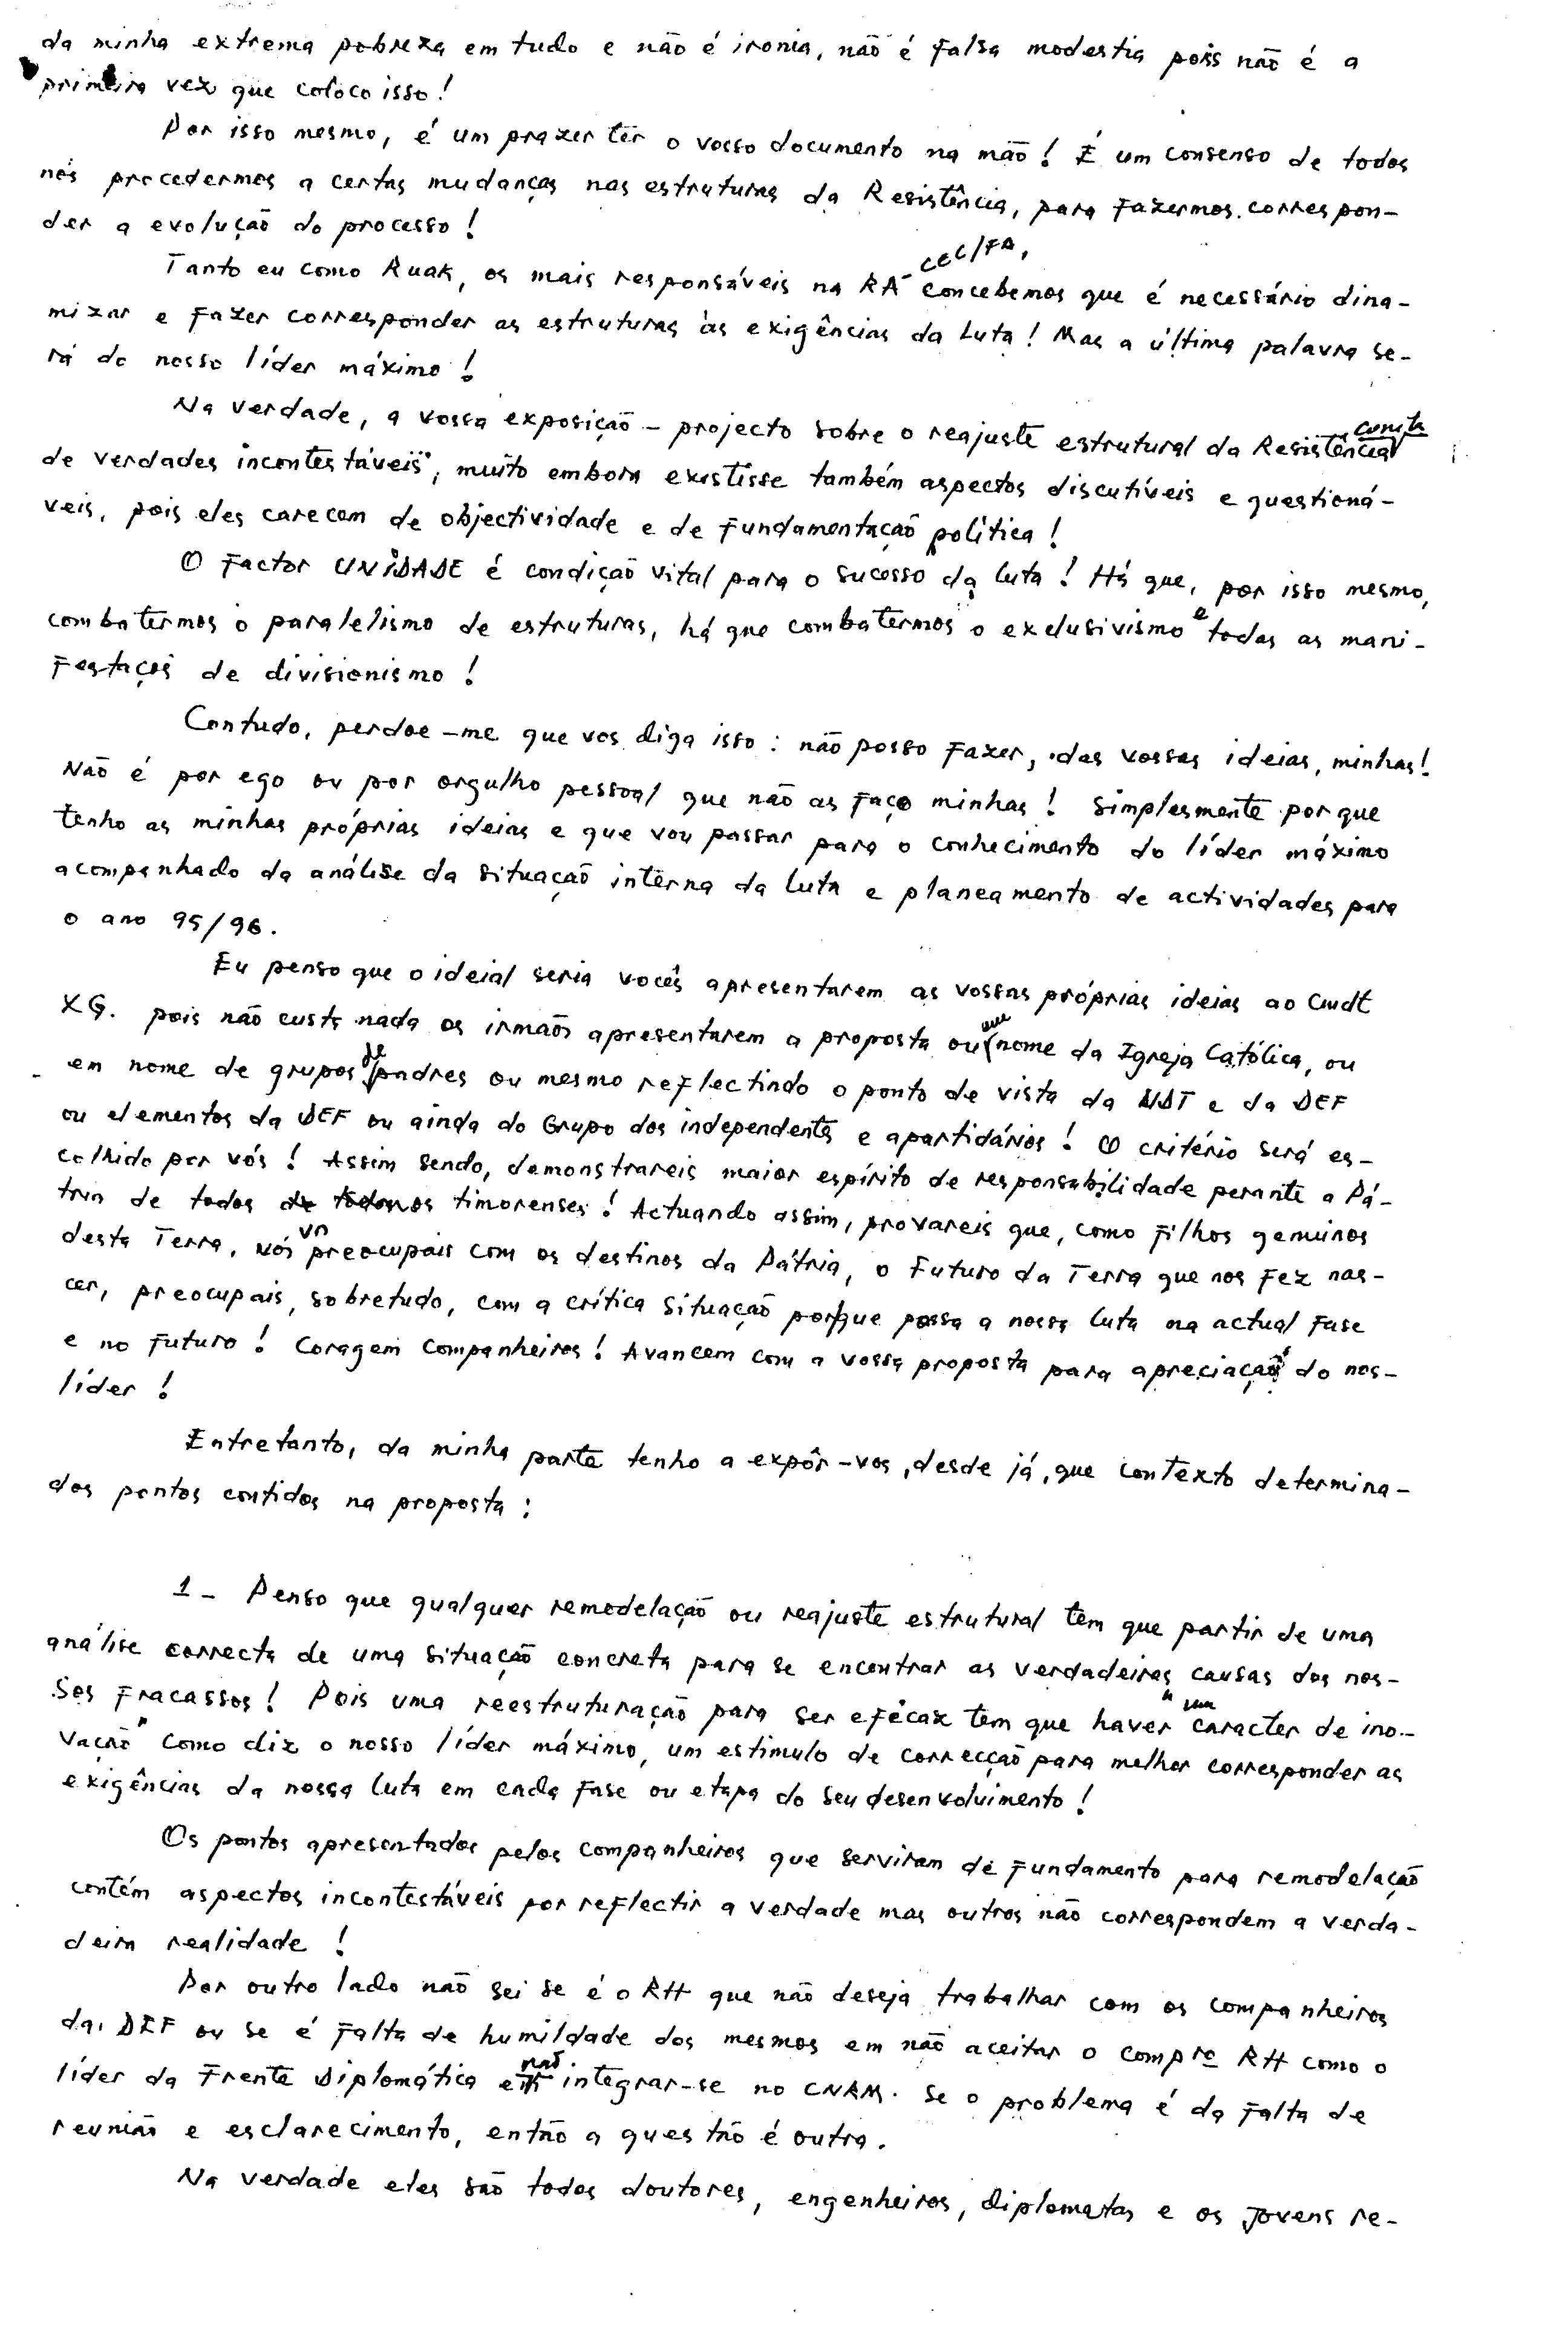 da minha extrema pobreza em tudo e não é ironia, não é falsa modestia pois não é a
primeira vez que coloco isso!
Por isso mesmo, é um prazer ter o vosso documento na mão! É um consenso de todos
nós procedermos a certas mudanças nas estruturas da Resistência, para fazermos correspon-
der a evolução do processo!
Tanto eu como Ruak, os mais responsáveis na RA - CEC/FA, concebemos que é necessário dina-
mizar e fazer corresponder as estruturas às exigências da luta! Mas a última palavra se-
rá do nosso líder máximo!
Na verdade, a vossa exposição - projecto sobre o reajuste estrutural da Resistência consta
de verdades incontestáveis, muito embora existisse também aspectos discutíveis e questioná-
veis, pois eles carecem de objectividade e de fundamentação política!
O Factor UNIDADE é condição vital para o sucesso da luta! Há que, por isso mesmo,
combatermos o paralelismo de estruturas, há que combatermos o exclusivismo e todas as mani-
festações de divisionismo!
Contudo, perdoe-me que vos diga isso: não posso fazer, das vossas ideias, minhas!
Não é por ego ou por orgulho pessoal que não as faço minhas! Simplesmente porque
tenho as minhas próprias ideias e que vou passar para o conhecimento do líder máximo
acompanhado da análise da situação interna da luta e planeamento de actividades para
o ano 95/96.
Eu penso que o ideial seria vocês apresentarem as vossas próprias ideias ao Cmdt
XG. pois não custa nada os irmãos apresentarem a proposta ou em nome da Igreja Católica, ou
em nome de grupos de padres ou mesmo reflectindo o ponto de vista da UDT e da DEF
ou elementos da DEF ou ainda do Grupo dos independentes e apartidários! O critério será es-
colhido por vós! Assim sendo, demonstrareis maior espírito de responsabilidade perante a Pá-
tria de todos nos timorenses! Actuando assim, provareis que, como filhos genuinos
desta Terra, vós vos preocupais com os destinos da Pátria, o Futuro da Terra que nos fez nas-
cer, preocupais, sobretudo, com a crítica situação porque passa a nossa luta na actual fase
e no futuro! Coragem companheiros! Avancem com a vossa proposta para apreciação do nos-
líder!
Entretanto, da minha parte tenho a expôr-vos, desde já, que contexto determina-
dos pontos contidos na proposta:
1 - Penso que qualquer remodelação ou reajuste estrutural tem que partir de uma
análise correcta de uma situação concreta para se encontrar as verdadeiras causas dos nos-
sos fracassos! Pois uma reestruturação para ser eficaz tem que haver "um caracter de ino-
vação" como diz o nosso líder máximo, um estimulo de correcção para melhor corresponder as
exigências da nossa luta em cada fase ou etapa do seu desenvolvimento!
Os pontos apresentados pelos companheiros que serviram de fundamento para remodelação
contém aspectos incontestáveis por reflectir a verdade mas outros não correspondem a verda-
deira realidade!
Por outro lado não sei se é o RH que não deseja trabalhar com os companheiros
da DEF ou se é falta de humildade dos mesmos em não aceitar o compro RH como o
líder da Frente Diplomática e não integrar-se no CNRM. Se o problema é da falta de
reunião e esclarecimento, então a questão é outra.
Na verdade eles são todos doutores, engenheiros, diplomatas e os jovens re-